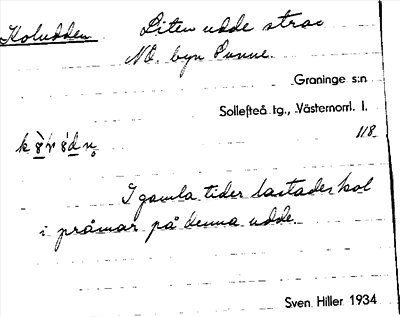 Koludden Liten udde strax
NO. byn Sunne.
Graninge s:n
Sollefteå tg., Västernorrl. l.
118
I gamla tider lastades kol
i pråmar på denna udde.
Sven Hiller 1934